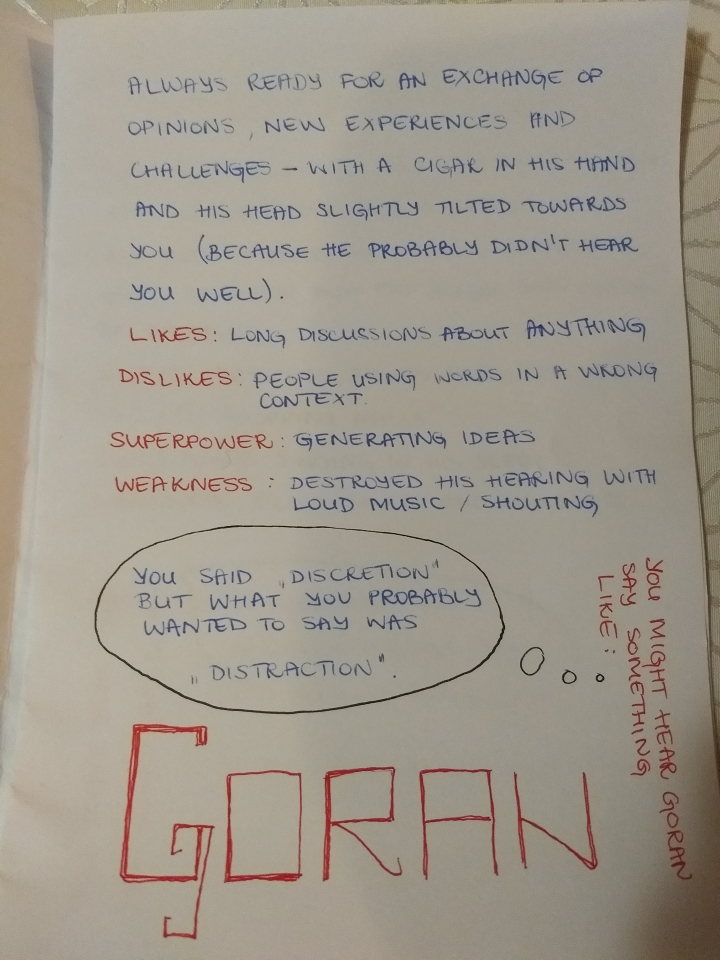 ALWAYS READY FOR AN EXCHANGE OF
OPINIONS, NEW EXPERIENCES AND
CHALLENGES – WITH A CIGAR IN HIS HAND
AND HIS HEAD SLIGHTLY TILTED TOWARDS
YOU (BECAUSE HE PROBABLY DIDN'T HEAR
YOU WELL).
LIKES: LONG DISCUSSIONS ABOUT ANYTHING
DISLIKES: PEOPLE USING WORDS IN A WRONG
CONTEXT.
SUPERPOWER: GENERATING IDEAS
WEAKNESS: DESTROYED HIS HEARING WITH
LOUD MUSIC / SHOUTING
YOU MIGHT HEAR GORAN
SAY SOMETHING
LIKE:
YOU SAID „DISCRETION"
BUT WHAT YOU PROBABLY
WANTED TO SAY WAS
„DISTRACTION".
GORAN